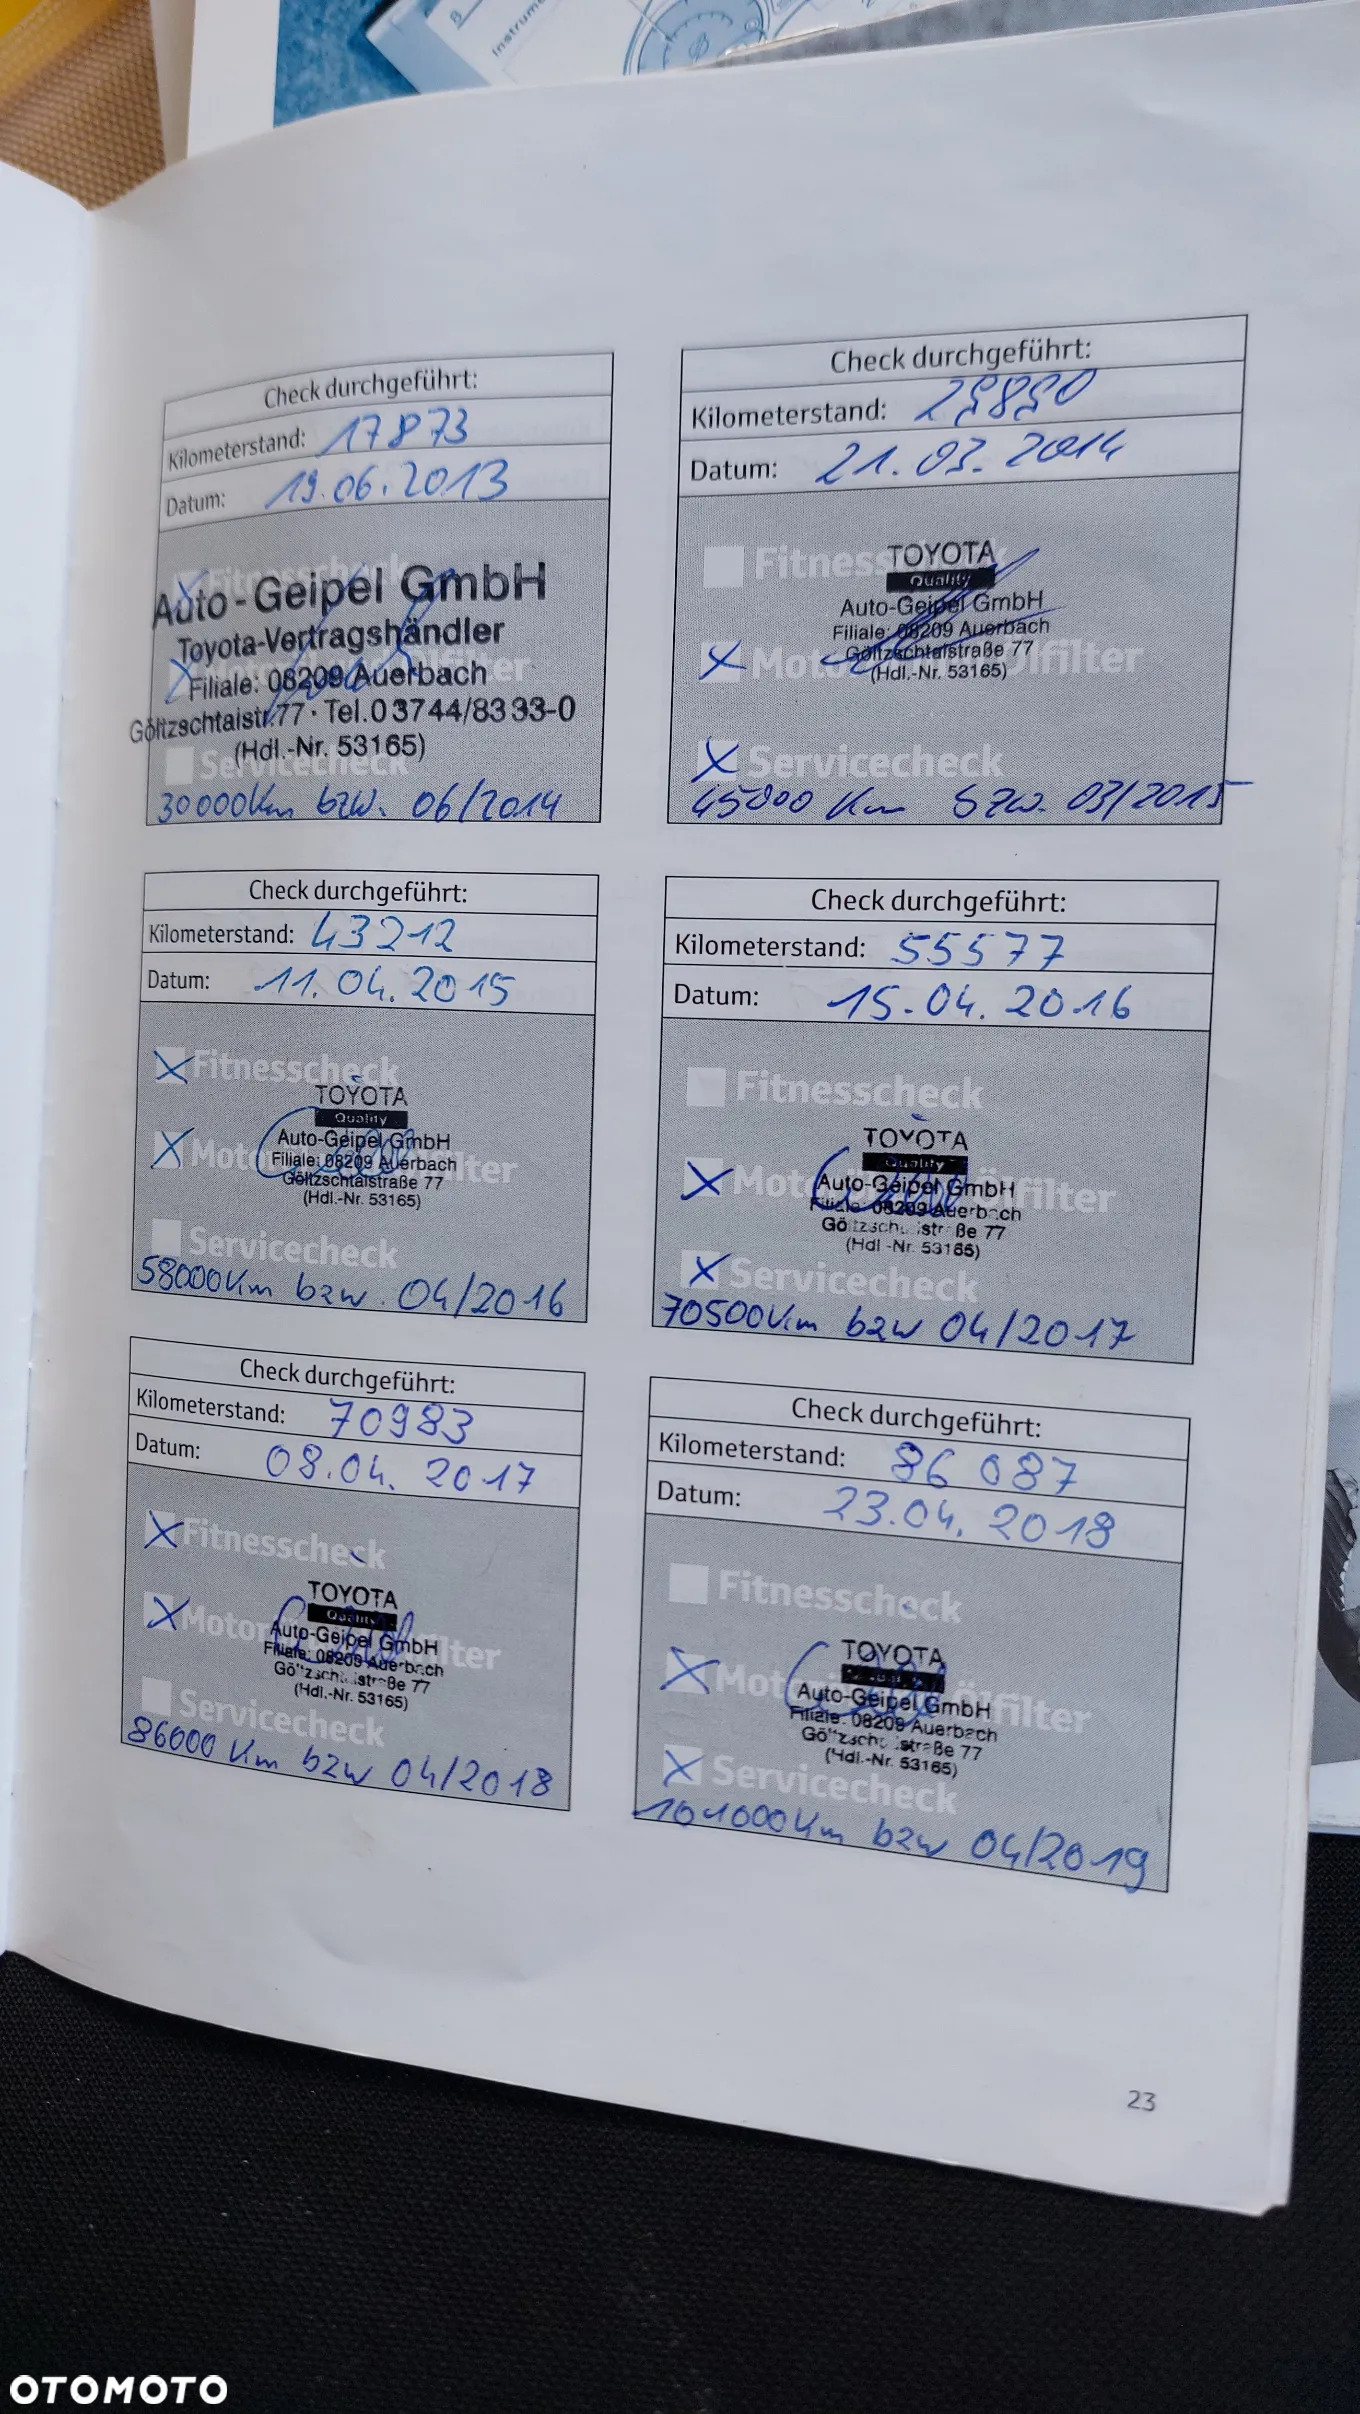 Instrume
Check durchgeführt:
Kilometerstand: 17873
Datum: 19.06.2013
Fitnesscheck
Auto-Geipel GmbH
Toyota-Vertragshändler
Filiale: 08209 Auerbach
Göltzschtalstr.77 · Tel.03744/8333-0
(Hdl.-Nr. 53165)
Servicecheck
30000Km bzw. 06/2014
Check durchgeführt:
Kilometerstand:
Datum: 21.03.2014
Fitnesscheck
TOYOTA
Quality
Auto-Geipel GmbH
Filiale: 08209 Auerbach
Göltzschtalstraße 77
(Hdl.-Nr. 53165)
Servicecheck
45000 Km bzw. 03/2015
Check durchgeführt:
Kilometerstand: 43212
Datum: 11.04.2015
Fitnesscheck
TOYOTA
Quality
Auto-Geipel GmbH
Filiale: 08209 Auerbach
Göltzschtalstraße 77
(Hdl.-Nr. 53165)
Servicecheck
58000Km bzw. 04/2016
Check durchgeführt:
Kilometerstand: 55577
Datum: 15.04.2016
Fitnesscheck
TOYOTA
Quality
Auto-Geipel GmbH
Filiale: 08209 Auerbach
Göltzschtalstraße 77
(Hdl.-Nr. 53165)
Servicecheck
70500Km bzw 04/2017
Check durchgeführt:
Kilometerstand: 70983
Datum: 08.04.2017
Fitnesscheck
TOYOTA
Quality
Auto-Geipel GmbH
Filiale: 08209 Auerbach
Göltzschtalstraße 77
(Hdl.-Nr. 53165)
Servicecheck
86000 Km bzw 04/2018
Check durchgeführt:
Kilometerstand: 86 087
Datum: 23.04.2018
Fitnesscheck
TOYOTA
Auto-Geipel GmbH
Filiale: 08209 Auerbach
Göltzschtalstraße 77
(Hdl.-Nr. 53165)
Servicecheck
101000Km bzw 04/2019
23
OTOMOTO